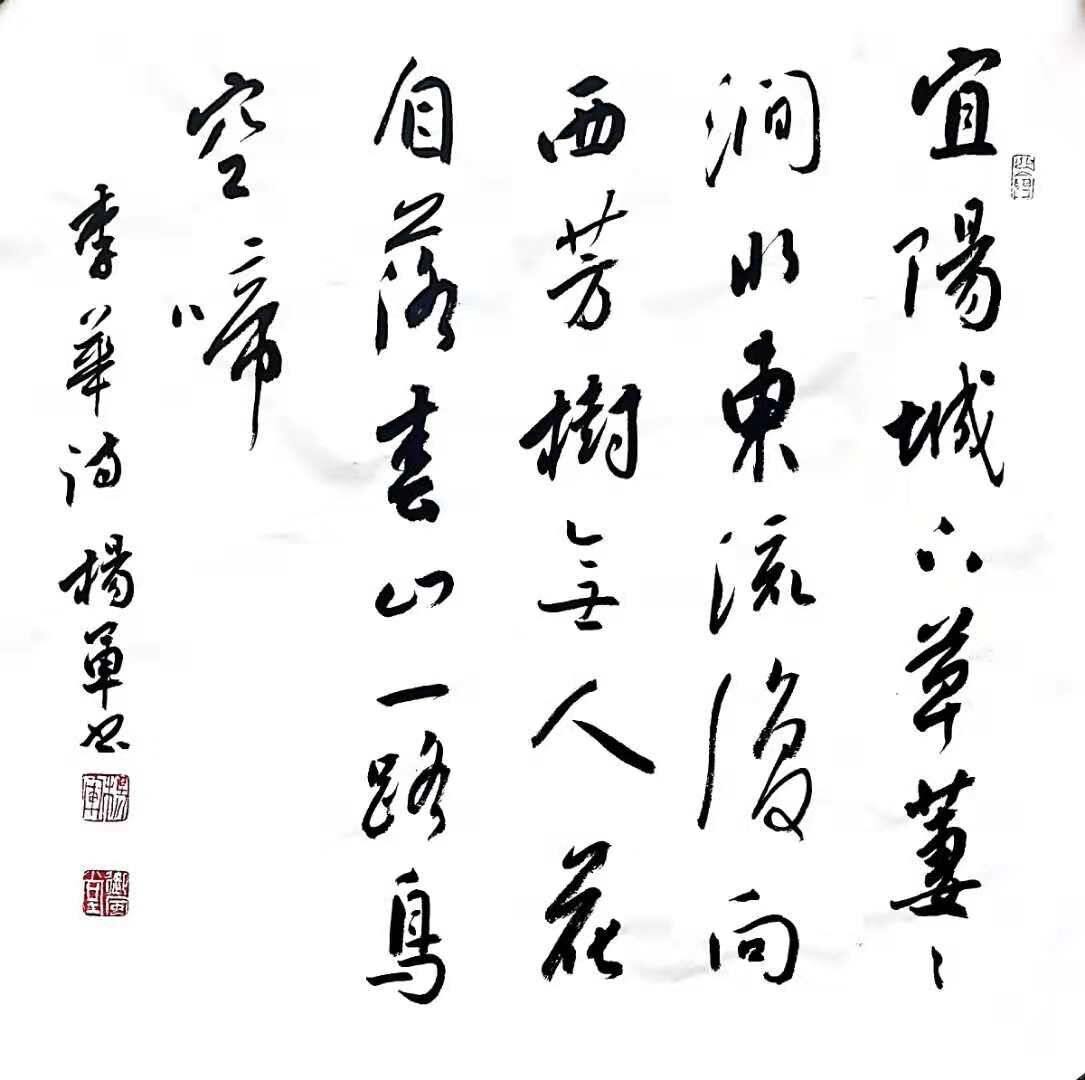 宜陽城下草萋〻
澗水東流復向
西芳樹無人花
自落春山一路鳥
空啼
李華詩楊軍書
楊軍